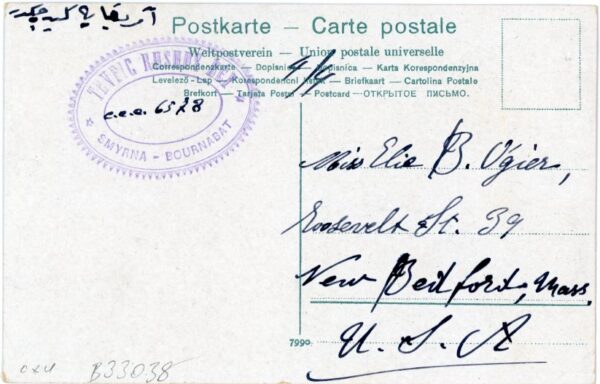 Postkarte – Carte postale
Weltpostverein – Union postale universelle
Correspondenzkarte – Dopisnice – Dopisnica – Karta Korespondenzyjna
Levelező-Lap – Korespondencni listek – Briefkaart – Cartolina Postale
Brefkort – Tarjeta Postal – Postcard – ОТКРЫТОЕ ПИСЬМО.
TEVFIC RUSHDI BEY
c.c.c. 6528
SMYRNA - BOURNABAT
Miss Elie B. Ogier,
Roosevelt St. 39
New Bedford, Mass.
7990
U. S. A
B33038